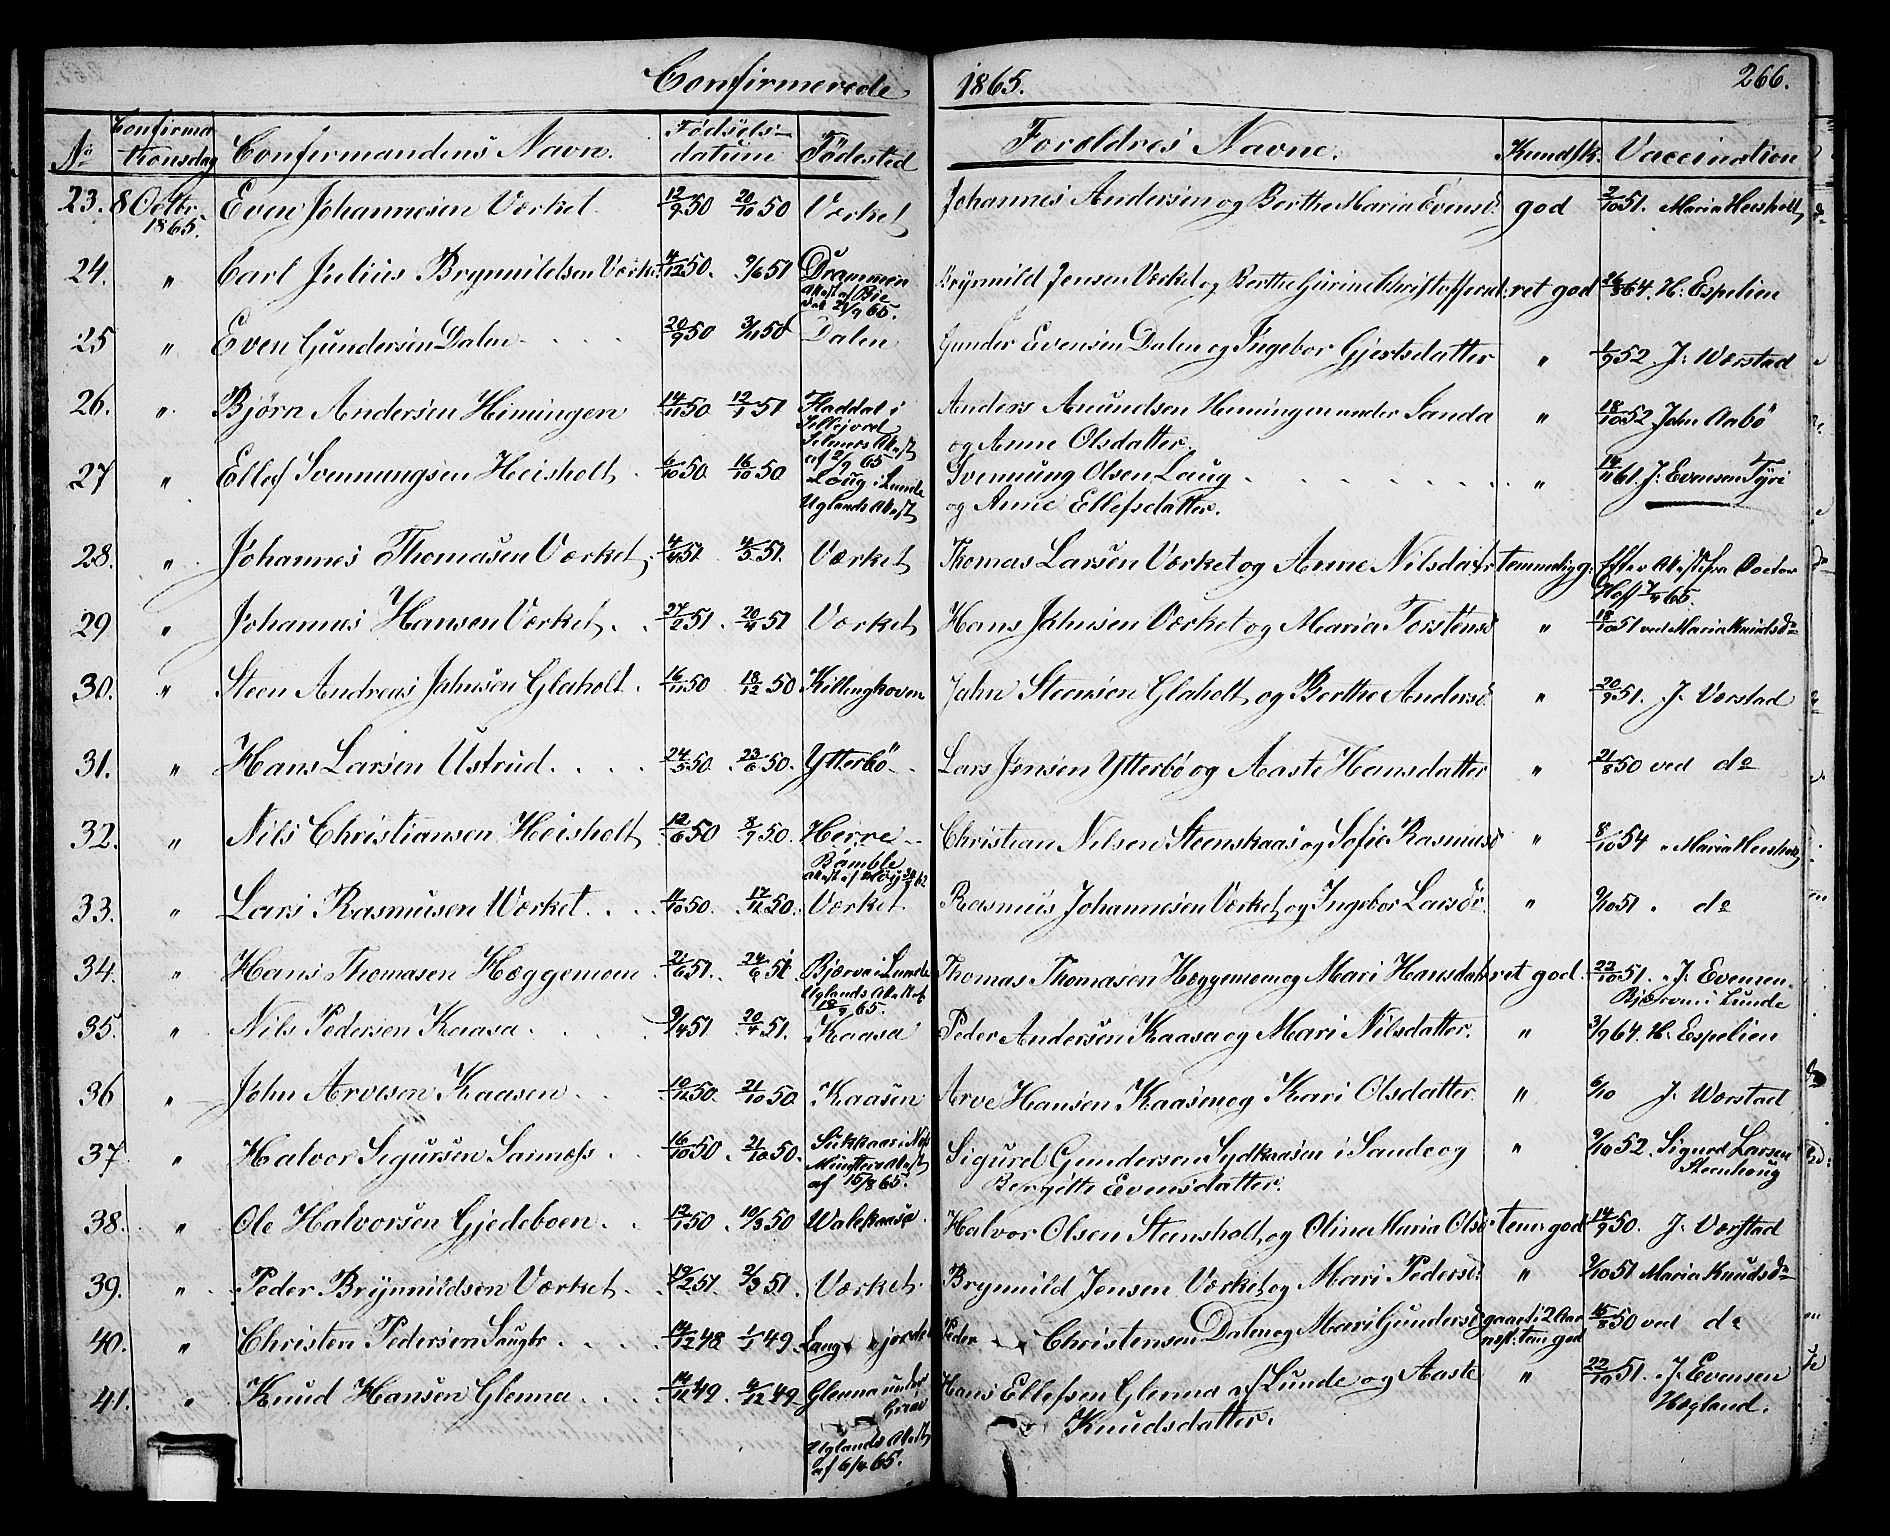 Confirmerede 1865. 266.
No Confirmationsdag Confirmandens Navn. Fødsels- datum Fødested Forældres Navne. Kundsk. Vaccination
23. 8 Octbr. 1865. Even Johannesen Værket. 12/9 50 20/10 50 Værket Johannes Andersen og Berthe Maria Evensd. god 2/10 51. Maria Heisholt
24. " Carl Julius Brynnildsen Værket 4/12 50. 9/6 51 Drammen Brynnild Jensen Værket og Berthe Gurine Christoffersd. ret god 26/8 64. H. Espelien
Attest af Bie
dat 21/9 65.
25 " Even Gundersen Dalen 20/9 50 3/11 50 Dalen Gunder Evensen Dalen og Ingebor Gjertsdatter " 1/9 52. J. Værstad
26. " Bjørn Andersen Himingen 14/11 50 12/1 51 Fladdal i Anders Amundsen Himingen under Sanda " 18/10 52 John Aabö
Sillejord
og Anne Olsdatter.
af 2/9 65
27 " Ellef Svennungsen Heisholt 6/10 50. 16/10 50 Loug i Lunde Svennung Olsen Laug " 14/11 61. J. Evensen Tyri
Uglands Attest og Anne Ellefsdatter.
28. " Johannes Thomasen Værket. 4/4 51 4/5 51. Værket Thomas Larsen Værket og Anne Nilsdatr temmelig g. Efter Attest fra Doctor
Hoff 7/9 65.
29 " Johannes Hansen Værket. 27/2 51. 20/4 51 Værket Hans Jahnsen Værket og Maria Torstensd " 18/10 51 ved Maria Knudsdr
30. " Steen Andreas Jahnsen Glaholt. 16/11 50 18/12 50 Killinghoven Jahn Steensen Glaholt og Berthe Andersd. " 20/9 51. J. Værstad
31. " Hans Larsen Ustrud. 24/5 50. 23/6 50. Ytterbö Lars Jensen Ytterbö og Aaste Hansdatter " 21/8 50 ved do
32. " Nils Christiansen Heisholt 12/6 50 8/9 50. Herre Christian Nilsen Steenskaas og Sofie Rasmusd " 8/10 54 " Maria Heisholt
Bamble
33. " Lars Rasmusen Værket. 4/10 50. 17/12 50. Værket Rasmus Johannesen Værket og Ingebor Larsdr. " 9/10 51 " do
34. " Hans Thomasen Hæggemoen 21/6 51. 24/6 51 Bjærva i Lunde Thomas Thomasen Hæggemoen og Mari Hansdatr ret god. 22/10 51. " J. Evensen
Uglands Attest Bjærva i Lunde
18/9 65.
35. " Nils Pedersen Kaasa 9/4 51 20/4 51. Kaasa Peder Andersen Kaasa og Mari Nilsdatter. " 3/9 64. H. Espelien
36 " John Arvesen Kaasen 10/12 50. 21/10 50. Kaasen Arve Hansen Kaasen og Kari Olsdatter. " 6/10 J. Værstad
37. " Halvor Sigursen Sarmofs. 16/10 50 21/10 50. Sukkaas i Sigurd Gundersen Sydkaasen i Sande og " 9/10 52. Sigurd Larsen
Münsters Attest Bergitte Evensdatter. Steenhoug
af 15/8 65.
38. " Ole Halvorsen Gjedeboen 12/1 50 10/3 50 Walekaasa Halvor Olsen Steensholt og Olina Maria Olsdr tem: god 14/9 50. J. Værstad
39. " Peder Brynnildsen Værket. 19/2 51. 2/3 51 Værket Brynnild Jensen Værket og Mari Pedersd. " 9/10 51 Maria Knudsdr
40. " Christen Pedersen Laugtr. 14/12 48 1/1 49. Laug Peder Christensen Dalen og Mari Gundersd. gaaet i 2 Aar 15/8 50 ved do
tem god
41. " Knud Hansen Glenna 14/11 49. 4/12 49 Glenna under Hans Ellefsen Glenna af Lunde og Aaste " 22/10 51. " J. Evensen
Knudsdatter. Høgland.
Uglands Attest
af 6/4 65.